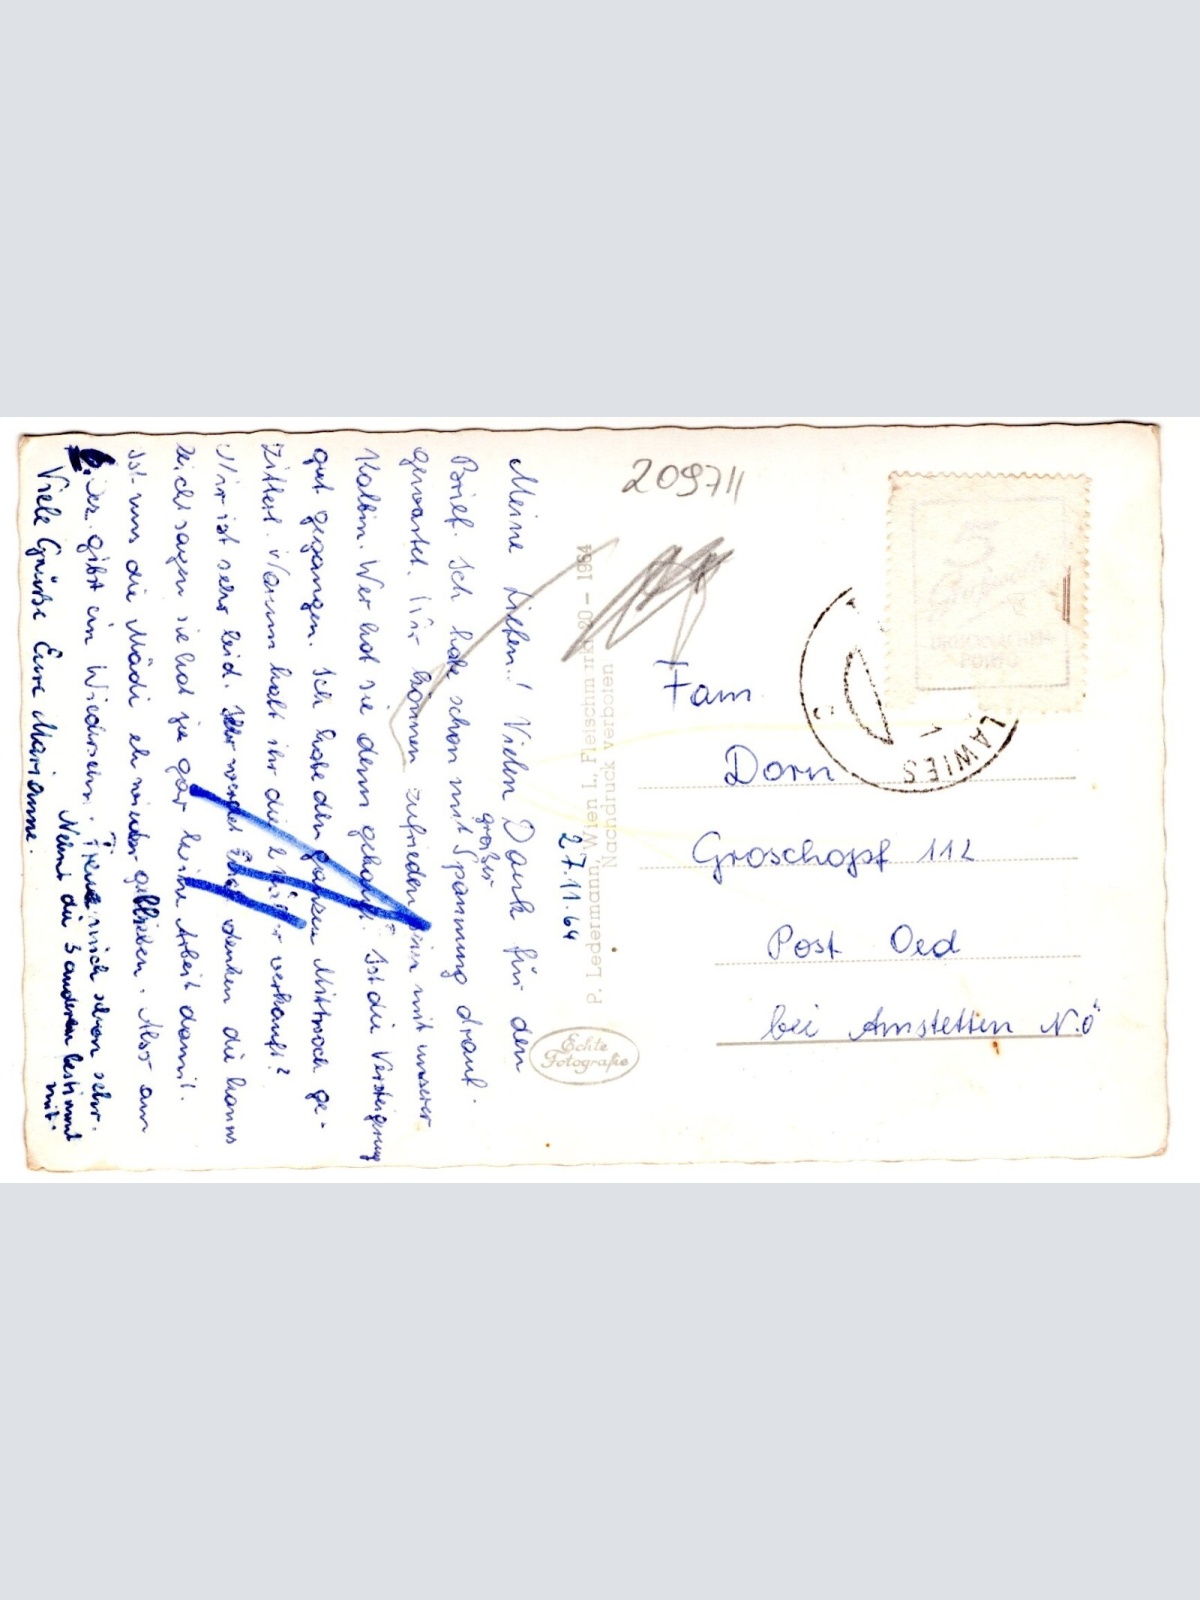 27.11.64
Meine Lieben! Vielen Dank für den
Brief. Ich habe schon mit großer Spannung drauf
gewartet. Wir können zufrieden sein mit unserer
Kalbin. Wer hat sie denn gekauft? Ist die Versteigerung
gut gegangen. Ich habe den ganzen Mittwoch ge-
zittert. Warum habt ihr die verkauft?
Mir ist sehr leid. Ihr werdet denken die kanns
leicht sagen sie hat ja gar keine Arbeit damit.
Ist uns die Mädi eh wieder geblieben. Also am
gibt ein Wiedersehn. Freue mich schon sehr.
Nehmt die 3 anderen bestimmt
mit.
Viele Grüße Eure Marianne.
P. Ledermann, Wien I., Fleischmarkt 20 - 1964
Nachdruck verboten
Echte
Fotografie
209711
Fam
Dorn
Groschopf 112
Post Oed
bei Amstetten N.Ö
5
PORTO
LAWIES